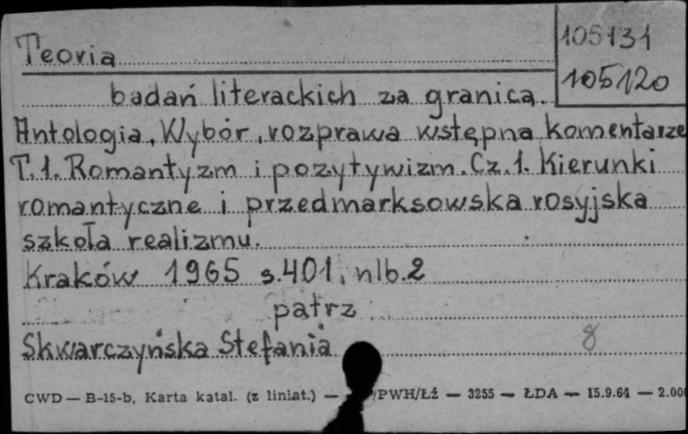 Teoria
105131
105120
badań literackich za granicą.
Antologia. Wybór, rozprawa wstępna komentarze
T.1. Romantyzm i pozytywizm. Cz.1. Kierunki
romantyczne i przedmarksowska rosyjska
szkoła realizmu.
Kraków 1965 s.401, nlb.2
patrz
Skwarczyńska Stefania
8
CWD — B-15-b, Karta katal. (z liniat.) — /PWH/Łż — 3255 — ŁDA — 15.9.64 — 2.000